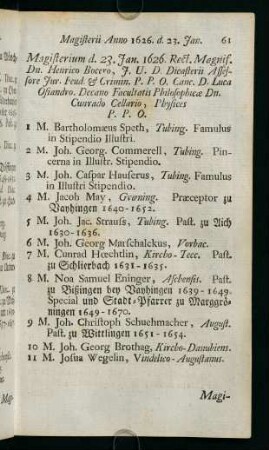 Magisterii Anno 1626. d. 23. Jan. 61
Magisterium d. 23. Jan. 1626. Rect. Magnif.
Dn. Henrico Bocero, J. U. D. Dicasterii Assef-
sore Jur. Feud. & Crimin. P. P. O. Canc. D. Luca
Osiandro. Decano Facultatis Philosophicæ Dn.
Cunrado Cellario, Physices
P. P. O.
1 M. Bartholomæus Speth, Tubing. Famulus
in Stipendio Illustri.
2 M. Joh. Georg. Commerell, Tubing. Pin-
cerna in Illustr. Stipendio.
3 M. Joh. Caspar Hauserus, Tubing. Famulus in
Illustri Stipendio.
4 M. Jacob May, Grœning. Præceptor zu
Vayhingen 1640-1652.
5 M. Joh. Jac. Strauss, Tubing. Past. zu Aich
1630-1636.
6 M. Joh. Georg Marschalckus, Vorbac.
7 M. Cunrad Hœchtlin, Kircho-Tecc. Past.
zu Schlierbach 1631-1635.
8 M. Noa Samuel Eninger, Aschensis. Past.
zu Rißingen bey Vayhingen 1639-1649.
Special und Stadt-Pfarrer zu Marggrö-
ningen 1649-1670.
9 M. Joh. Christoph Schuchmacher, August.
Past. zu Wittlingen 1651-1654.
10 M. Joh. Georg Brothag, Kircho-Danubiens.
11 M. Josua Wegelin, Vindelico-Augustanus.
Magi-